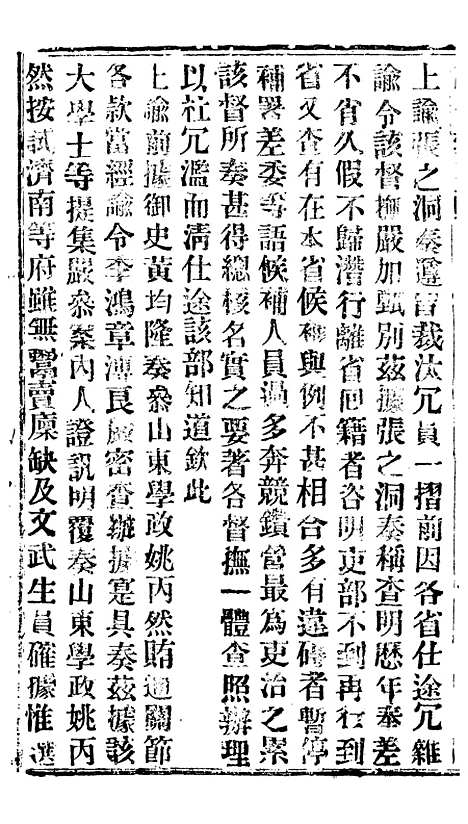 上諭張之洞奏遵旨裁汰冗員一摺前因各省仕途冗雜
諭令該督撫嚴加甄別茲據張之洞奏稱查明歷年奉差
不省久假不歸潛行離省回籍者咨明吏部不到再行到
省又查有在本省候補與例不甚相合多有違碍者暫停
補署差委等語候補人員過多奔競鑽營最為吏治之累
該督所奏甚得總核名實之要著各督撫一體查照辦理
以杜冗濫而清仕途該部知道欽此
上諭前據御史黃均隆奏參山東學政姚丙然賄通關節
各款當經諭令李鴻章溥良嚴密查辦據寔具奏茲據該
大學士等提集嚴參案內人證訊明覆奏山東學政姚丙
然按試濟南等府雖無鬻賣廩缺及文武生員確據惟選